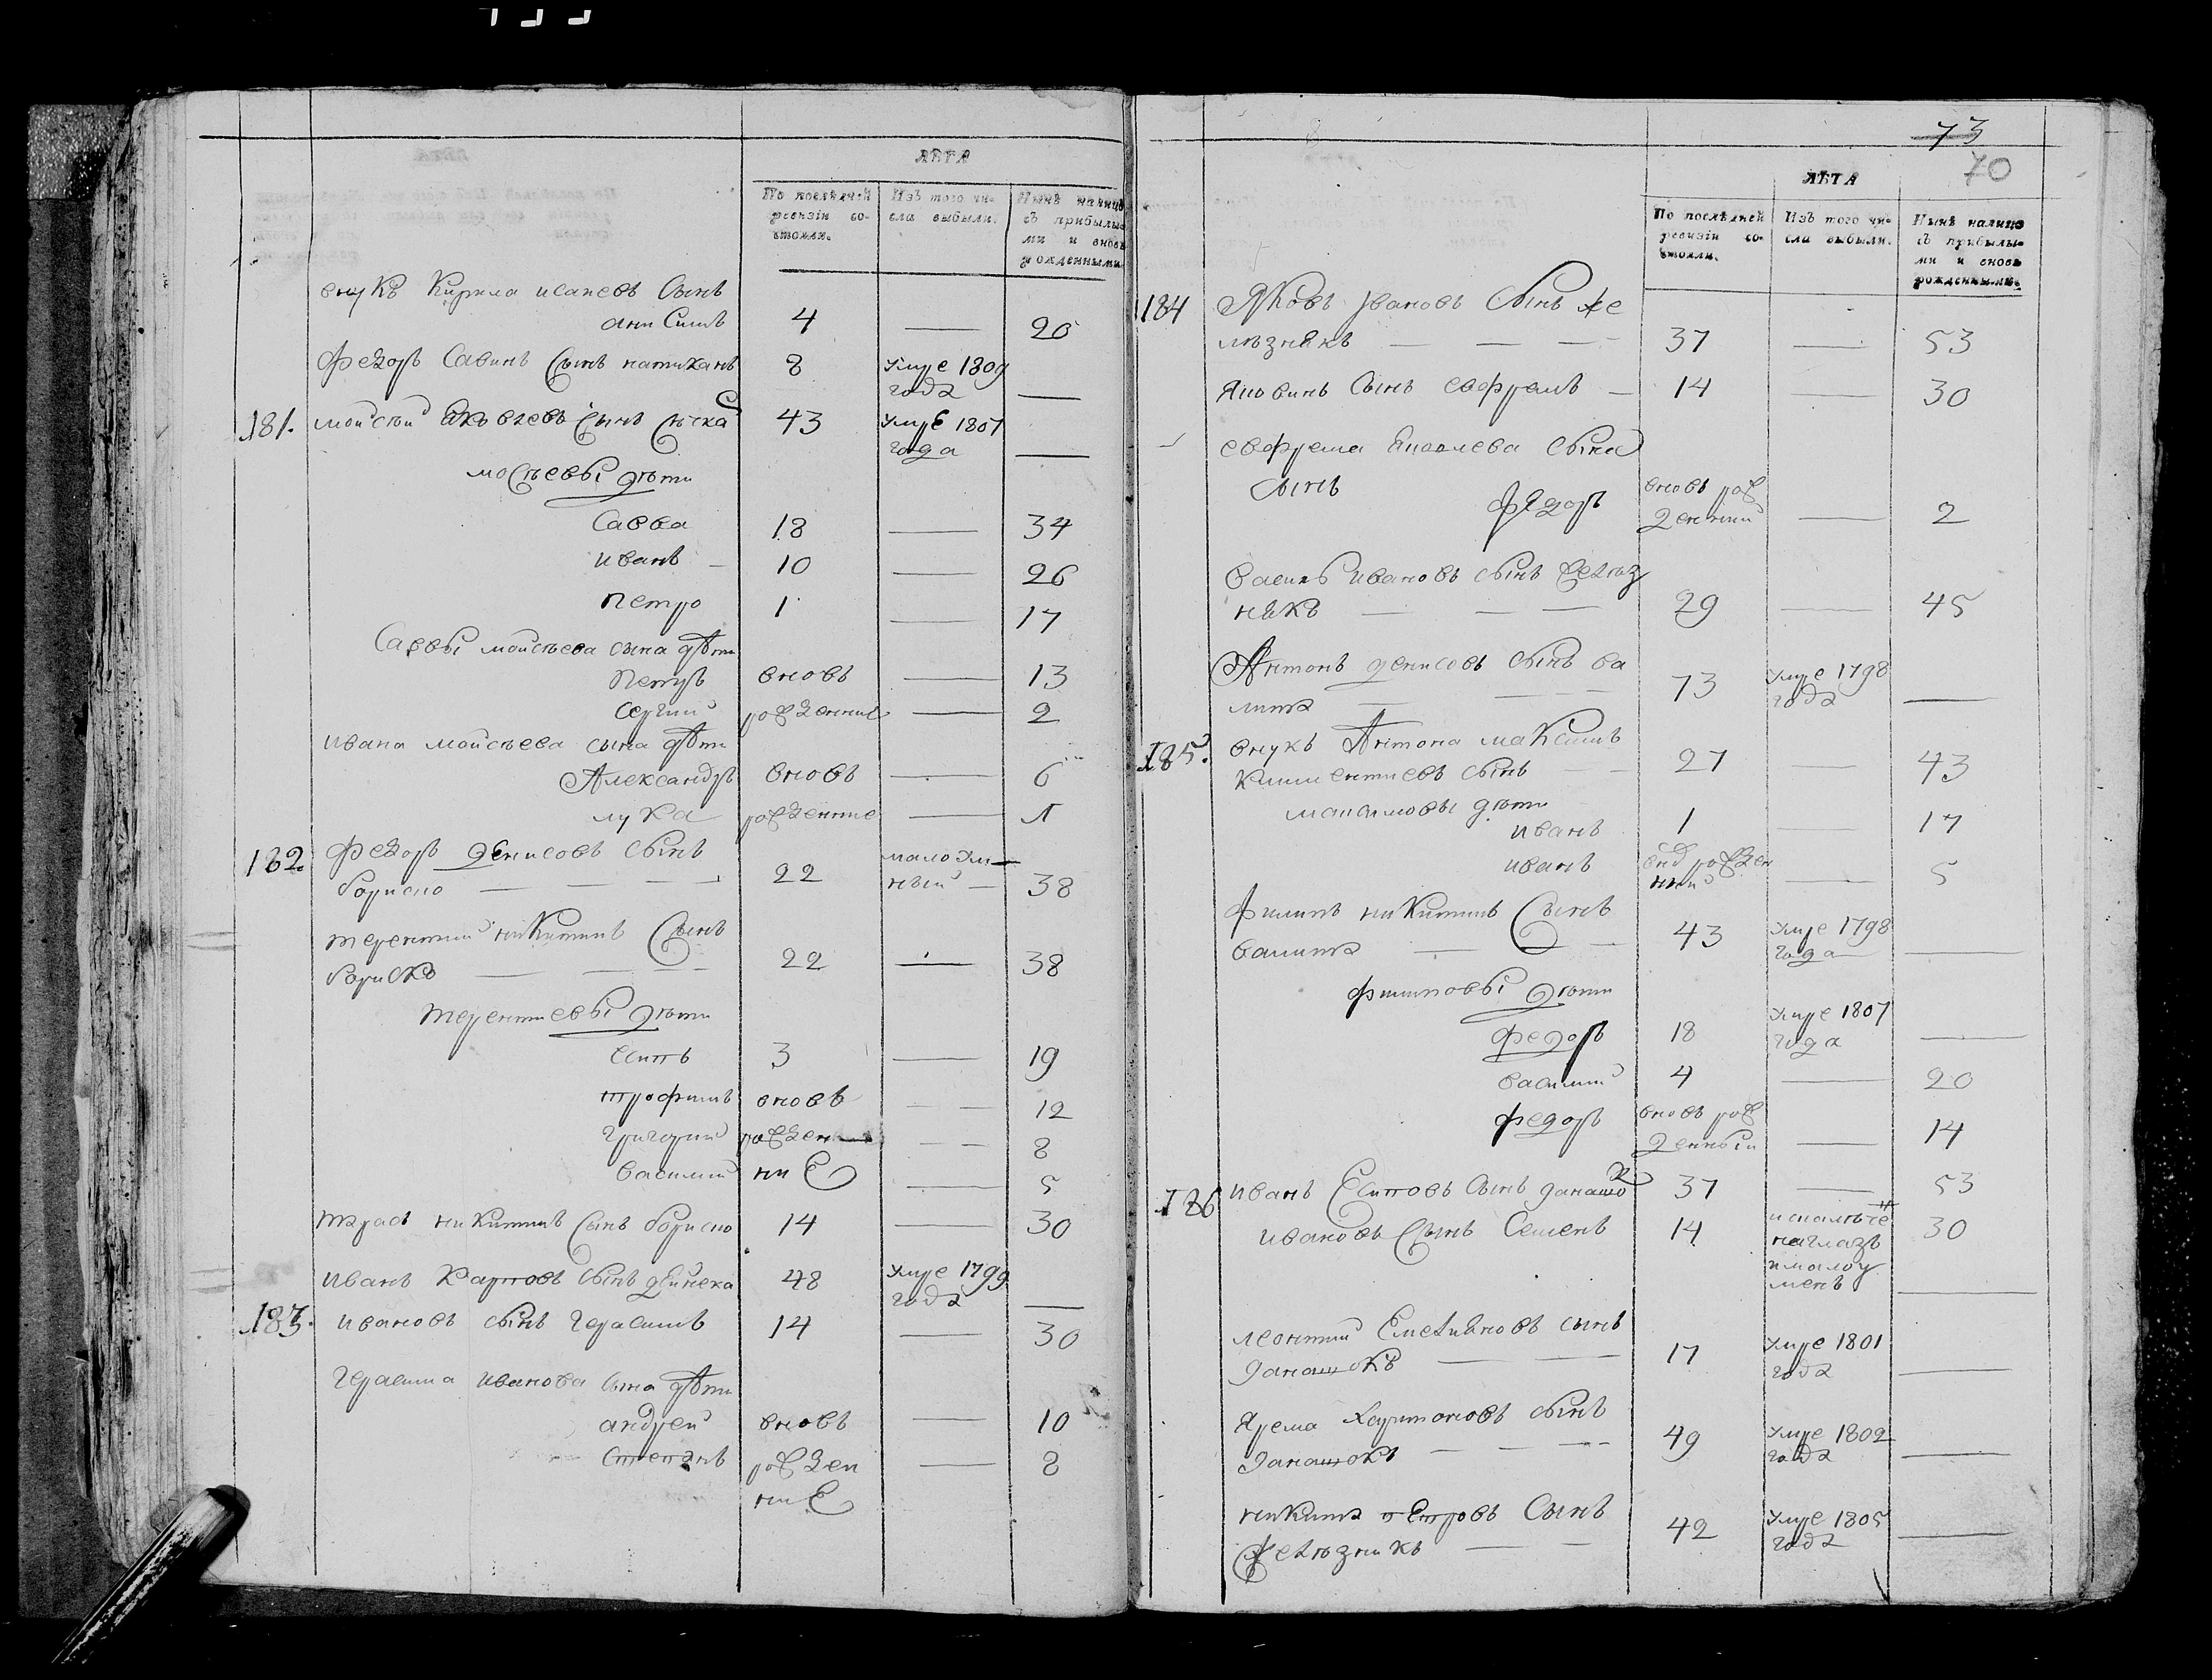 ЛѢТА
По послѣдней ревизіи со-стояли.
Изъ того чи-сла выбыли.
Нынѣ налицо съ прибылы-ми и вновь рожденными.
внукъ Кирила исаиевъ Сынъ
анисимъ 4 — 20
Федоръ Савинъ Сынъ 8 умре 1809
года —
181. мойсей Яковлевъ Сынъ 43 умре 1807
года —
мосѣевы дѣти
Савва 18 — 34
иванъ — 10 — 26
Петро 1 — 17
Саввы мойсѣева сына дѣти
Петръ вновь — 13
Сергий рожденние — 2
ивана мойсѣева сына дѣти
Александръ вновь — 6
лука рожденние — 1
182. Федоръ денисовъ Сынъ
бориско — — — 22 малоум-
ный — 38
терентий никитинъ Сынъ
бориско — — — 22 — 38
терентиевы дѣти
Есипъ 3 — 19
трофимъ вновь — — 12
григорий рожден — — 8
василий ние — 5
тарасъ никитинъ Сынъ бориско 14 — 30
иванъ Карповъ Сынъ дейнека 48 умре 1799
года —
183. ивановъ сынъ герасимъ 14 — 30
герасима иванова сына дѣти
андрей вновь — 10
Степанъ рожден — 8
ние
73
70
ЛѢТА
По послѣдней ревизіи со-стояли.
Изъ того чи-сла выбыли.
Нынѣ налицо съ прибылы-ми и вновь рожденными.
184 Яковъ Ивановъ Сынъ же
лѣзнякъ — — — 37 — 53
Яковинъ Сынъ евфремъ — 14 — 30
евфрема Яковлева Сына
Сынъ вновь рож
Федоръ денний — 2
василь ивановъ сынъ желѣз
някъ — — — 29 — 45
Антонъ денисовъ сынъ ва
лита — — — 73 умре 1798
года —
185. внукъ Антона максимъ
климентиевъ сынъ — 27 — 43
максимовы дѣти
иванъ 1 — 17
иванъ внов рожден
ний — 5
Филипъ никитинъ Сынъ
валита — — — 43 умре 1798
года —
филиповы дѣти
федоръ 18 умре 1807
года —
василий 4 — 20
федоръ вновь рож
денный — 14
186 иванъ Есиповъ Сынъ данашок 37 — 53
ивановъ Сынъ Семенъ 14 30
на глазъ
и малоу
менъ —
леонтий Емелиановъ сынъ
данашокъ — — 17 умре 1801
года —
Ярема Харитоновъ сынъ
данашокъ — — — 49 умре 1802
года —
никита петровъ Сынъ
Желѣзникъ — — 42 умре 1805
года —